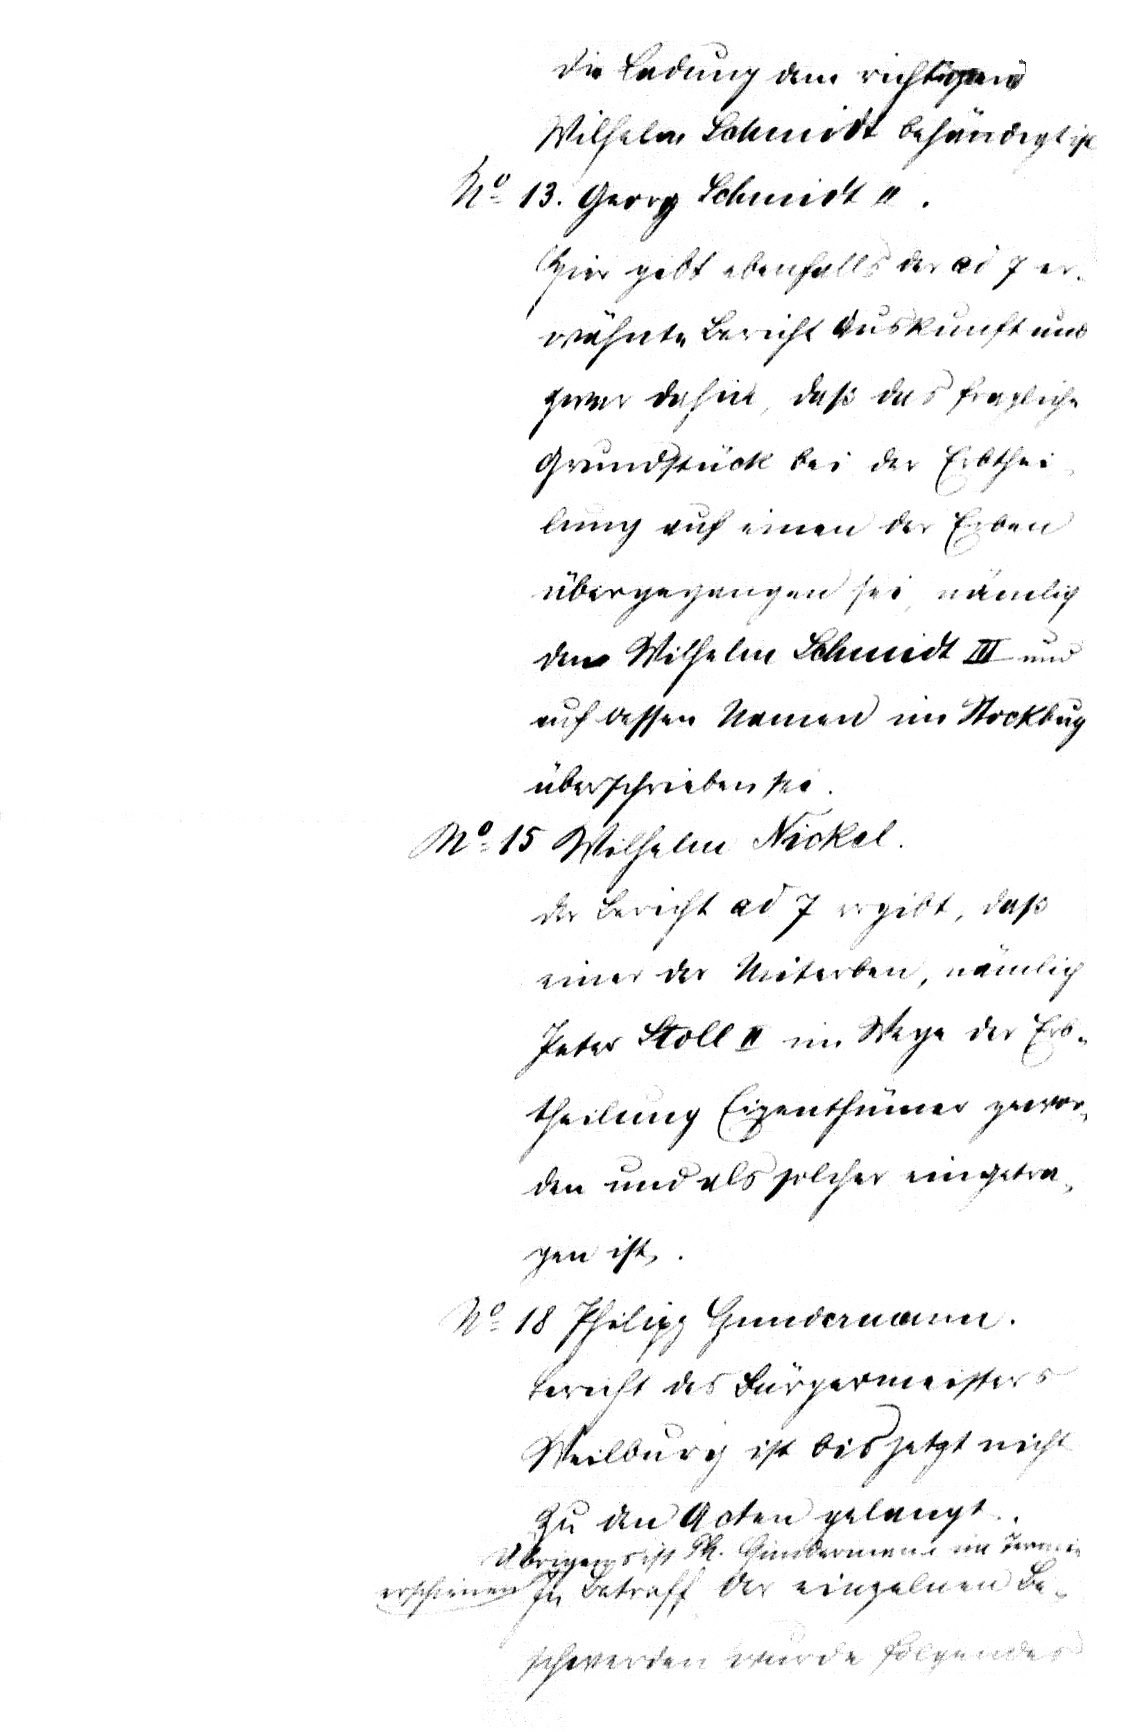 die Ladung dem richtigen
Wilhelm Schmidt behändigt ist
No 13. Georg Schmidt II.
Hier gibt ebenfalls der ad 7 er-
wähnte Bericht Auskunft und
zwar dahin, daß das fragliche
Grundstück bei der Erbthei-
lung auf einen der Erben
übergegangen sei, nämlich
den Wilhelm Schmidt III und
auf dessen Namen im Stockbuch
überschrieben sei.
No 15 Wilhelm Nickel.
der Bericht ad 7 ergibt, daß
einer der Miterben, nämlich
Peter Stoll II im Wege der Erb-
theilung Eigenthümer gewor-
den und als solcher eingetra-
gen ist.
No 18 Philipp Gundermann.
Bericht des Bürgermeisters
Weilburg ist bis jetzt nicht
zu den Acten gelangt.
Übrigens ist Ph. Gundermann im Termin
erschienen
In Betreff der einzelnen Be-
schwerden wurde folgendes